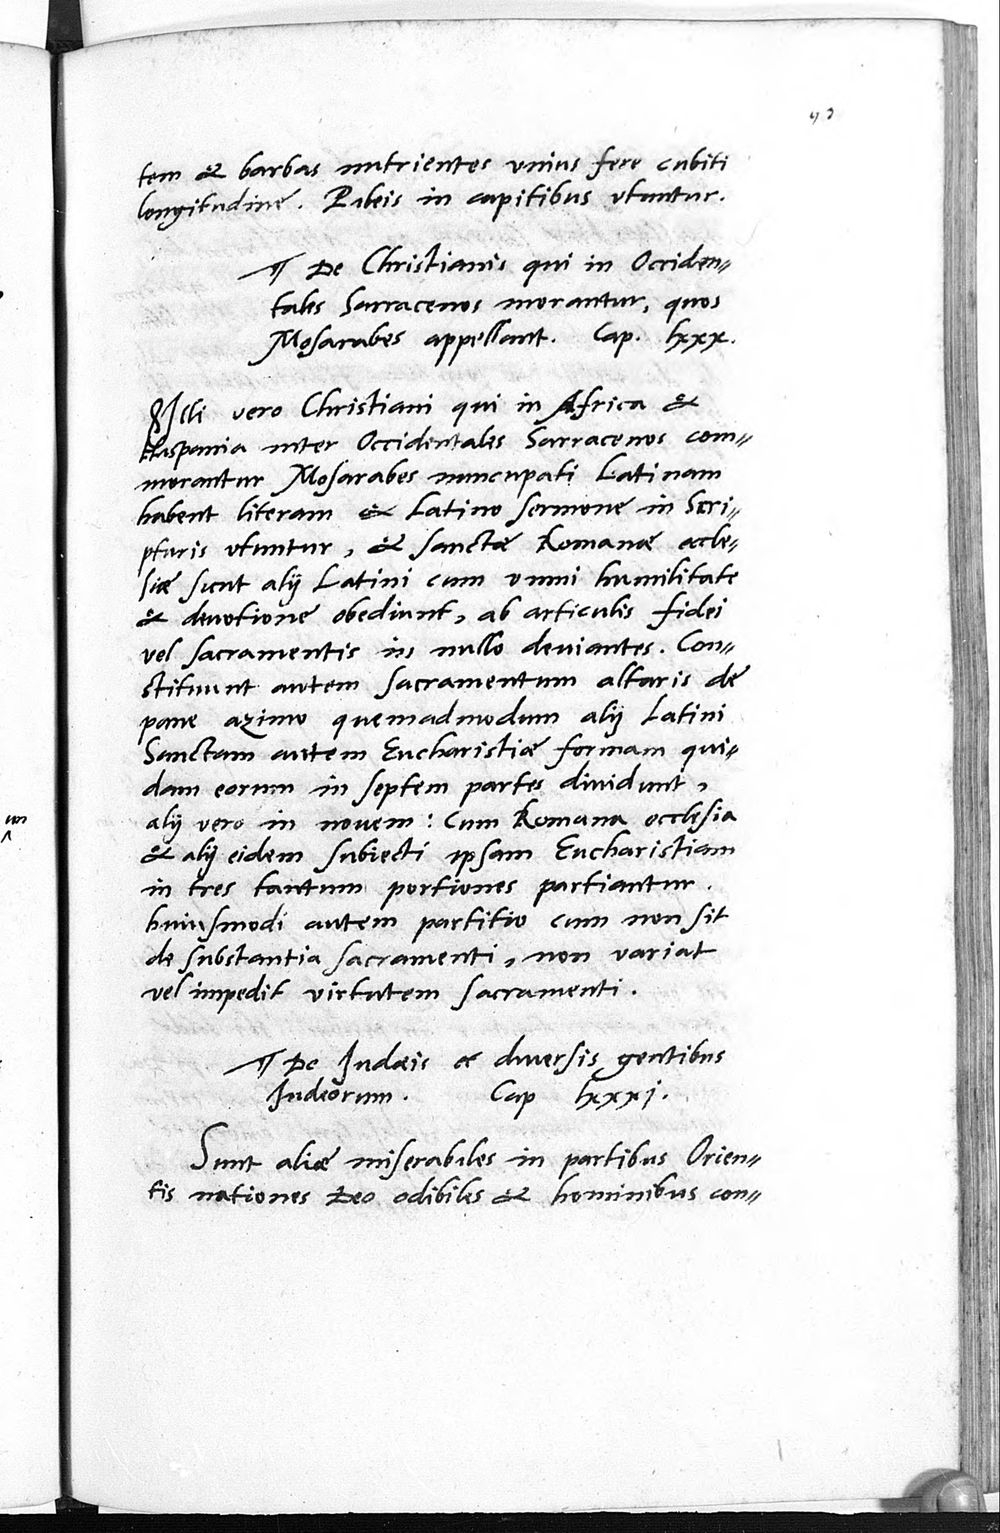 tem & barbas nutrientes vnius fere cubiti
longitudine. Pileis in capitibus vtuntur.
¶ De Christianis qui in Occiden〃
tales Sarracenos morantur, quos
Mosarabes appellant. Cap. lxxx.
Illi vero Christiani qui in Africa &
Hispania inter Occidentales Sarracenos com〃
morantur Mosarabes nuncupati Latinam
habent literam & Latino sermone in Scri〃
pturis vtuntur, & sanctæ Romanæ eccle〃
siæ sicut alij Latini cum omni humilitate
& deuotione obediunt, ab articulis fidei
vel sacramentis in nullo deuiantes. Con〃
stituunt autem sacramentum altaris de
pane azimo quemadmodum alij Latini
Sanctam autem Eucharistiæ formam qui〃
dam eorum in septem partes diuidunt,
alij vero in nouem: Cum Romana ecclesia
& alij eidem subiecti ipsam Eucharistiam
in tres tantum portiones partiantur.
huiusmodi autem partitio cum non sit
de substantia sacramenti, non variat
vel impedit virtutem sacramenti.
¶ De Judæis & diuersis gentibus
Judeorum. Cap lxxxj.
Sunt aliæ miserabiles in partibus Orien〃
tis nationes Deo odibiles & hominibus con〃